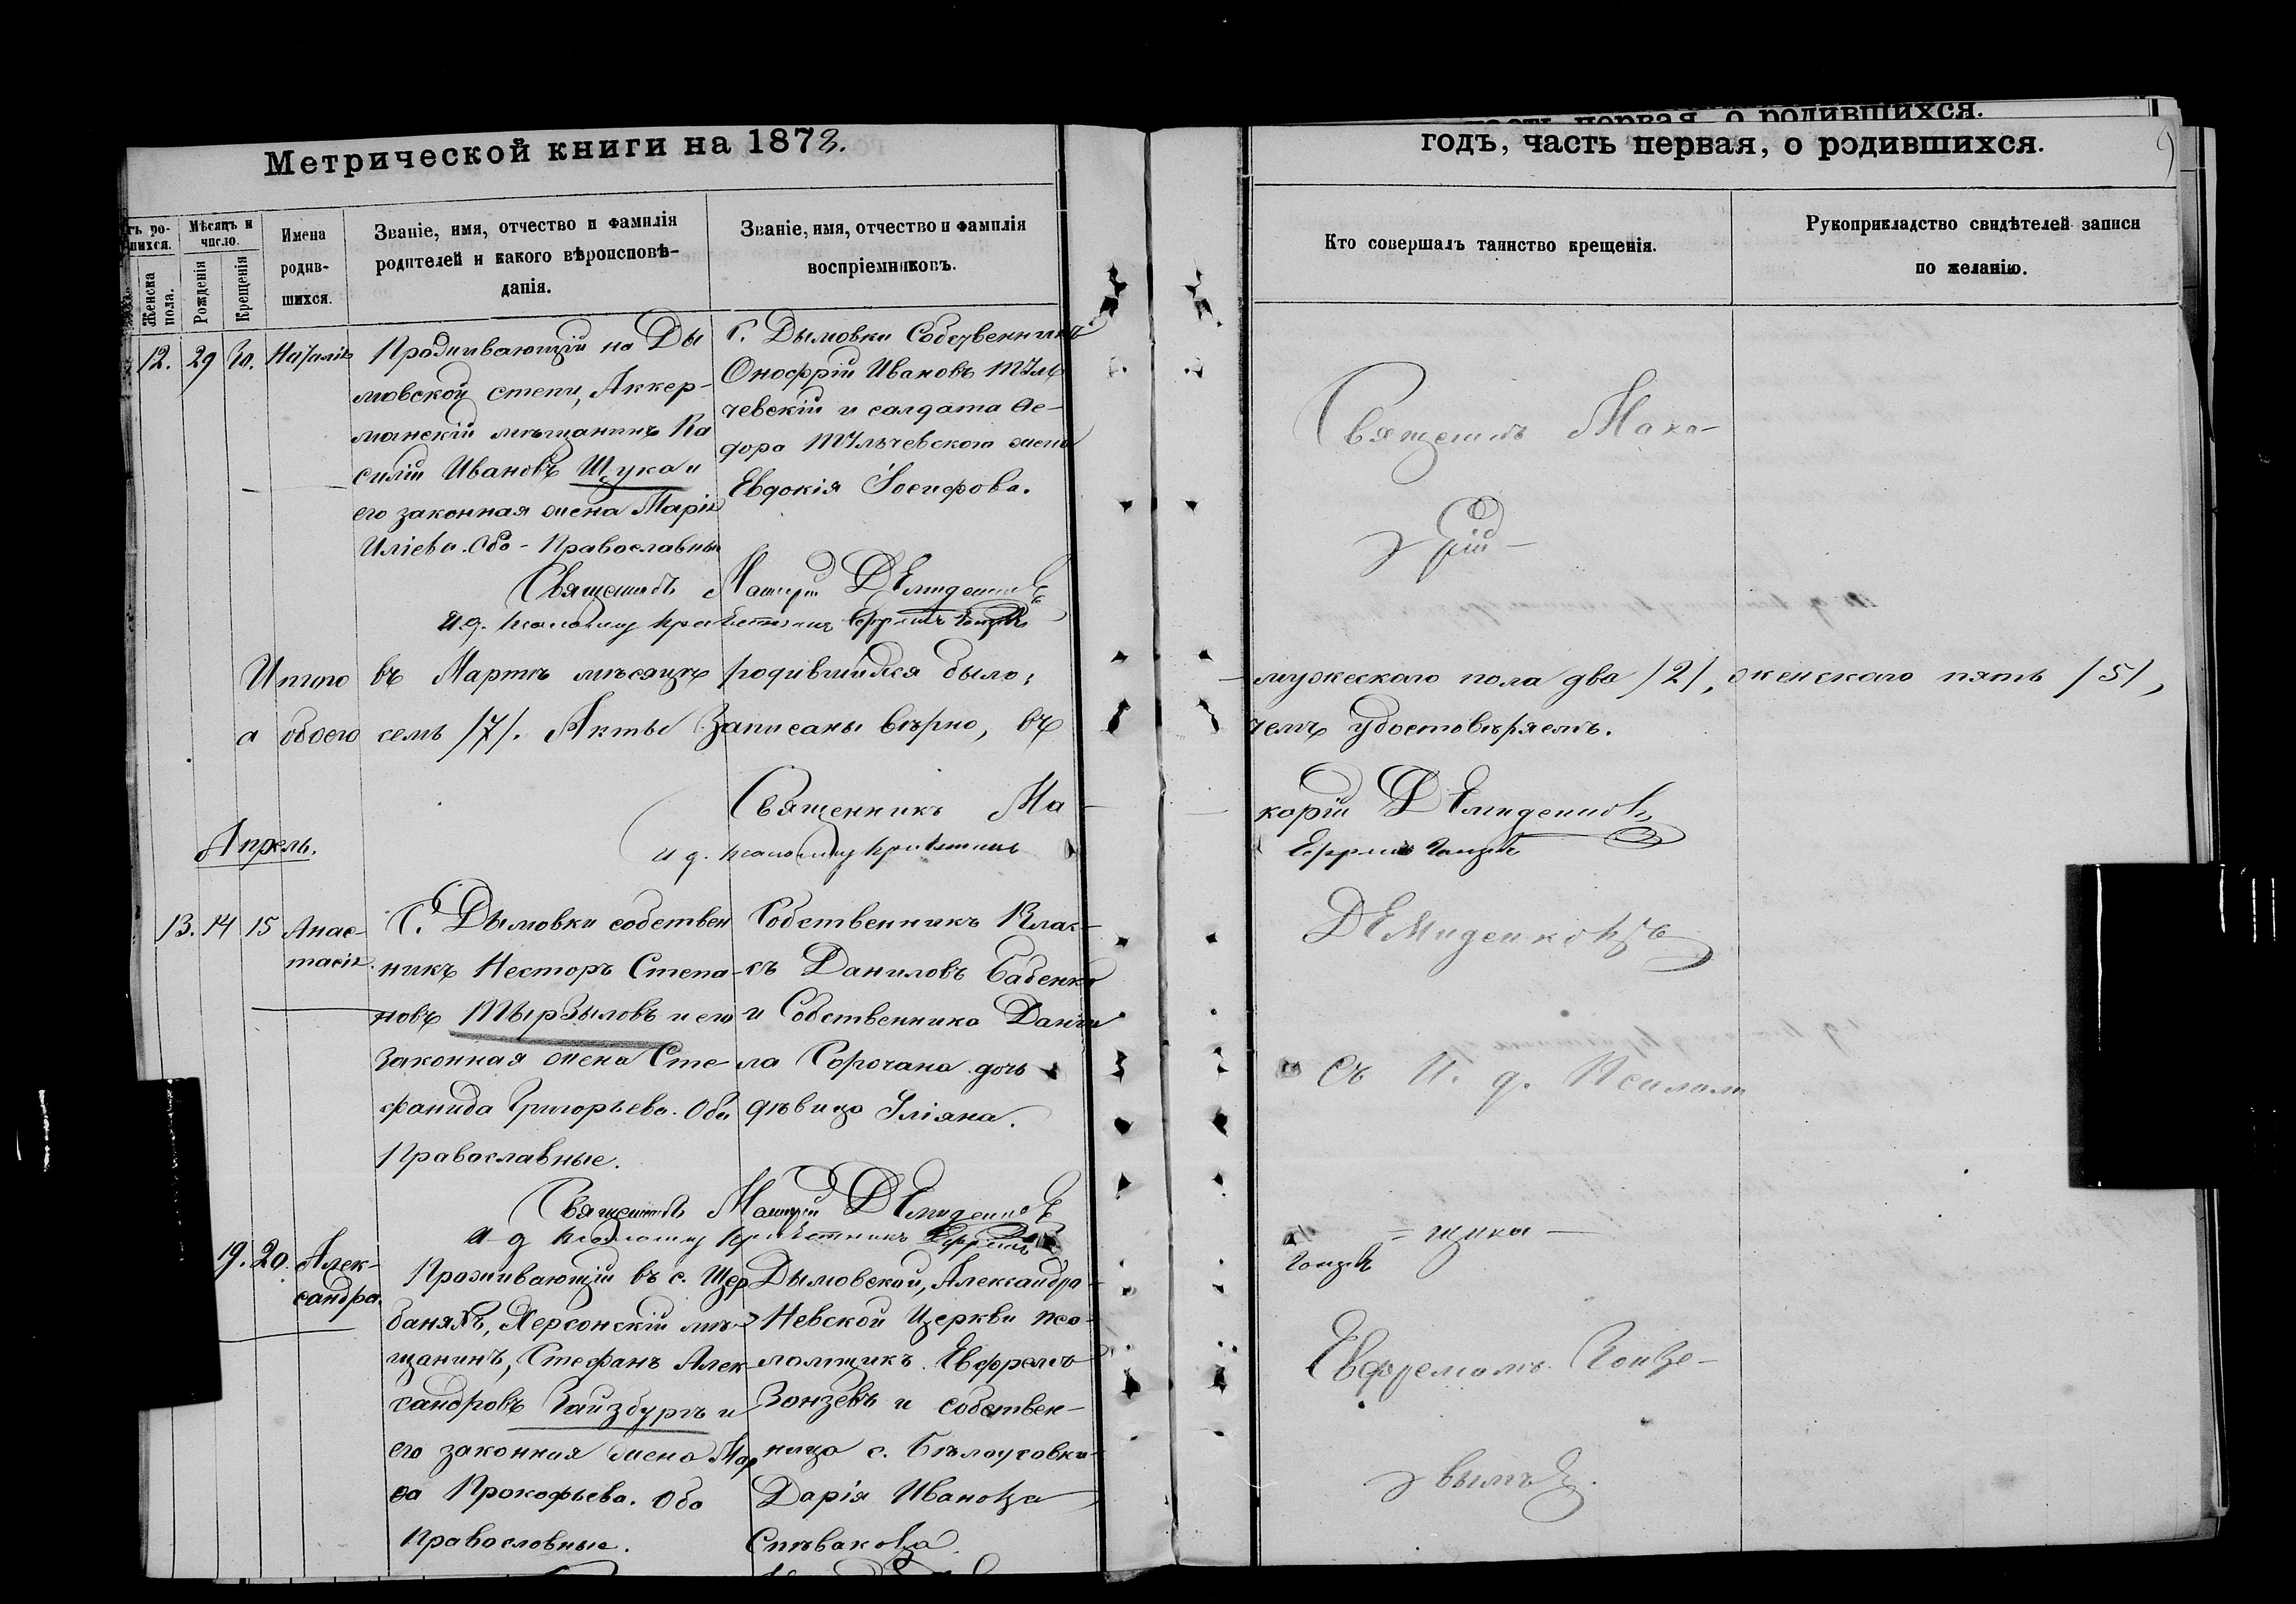 Метрической книги на 1873.
годъ, часть первая, о родившихся.
Мѣсяцъ и число.
Женска пола.
Рожденія
Крещенія
Имена родив-
шихся.
Званіе, имя, отчество и фамилія
родителей и какого вѣроисповѣ-
данія.
Званіе, имя, отчество и фамилія
воспріемниковъ.
Кто совершалъ таинство крещенія.
Рукоприкладство свидѣтелей записи
по желанію.
12. 29 30. Наталія
Проживающій на Ды
мовской степи, Аккер-
манскій мѣщанинъ Ва
силій Ивановъ Щука и
его законная жена Марія
Иліева. Оба - Православные
С. Дымовки Собственникъ
Онофрій Ивановъ
чевскій и солдата Ѳе-
дора Тульчевского жена
Евдокія Іосифова.
Священникъ Мака-
рій
Священникъ Макарій Демиденковъ
И. д. псаломщ
Итого въ Мартѣ мѣсяцѣ родившихся было:
мужескаго пола два /2/, женскаго пять /5/,
а обоего семь /7/. Акты записаны вѣрно, въ
чемъ удостовѣряемъ.
Священникъ Ма-
карій Демиденковъ
и д. псаломщ
Апрель.
13. 14 15 Анас-
тасія.
С. Дымовки собствен
никъ Несторъ Степа-
новъ Тырзыловъ и его
законная жена Сте-
фанида Григорьева. Оба
Православные.
Собственникъ Влас-
съ Даниловъ Бабенко
и Собственника Дани
ла Сорочана дочь
дѣвица Уліяна.
Демиденковъ
съ И. д. Псалом
Священникъ Макарій Демиденковъ
И д псаломщ
= щика -
19. 20. Алек-
сандра.
Проживающій въ с. Щер
баняхъ, Херсонскій мѣ-
щанинъ, Стефанъ Алек-
сандровъ Гайзбургъ и
его законная жена Мар
ѳа Прокофьева. Оба
Православные.
Дымовской, Александро-
Невской Церкви пса-
ломщикъ Ефремъ
Гонзевъ и собствен-
ница с. Бѣлоусовки
Дарія Иванова
Спѣвакова
Ефремомъ Гонзе-
вымъ.